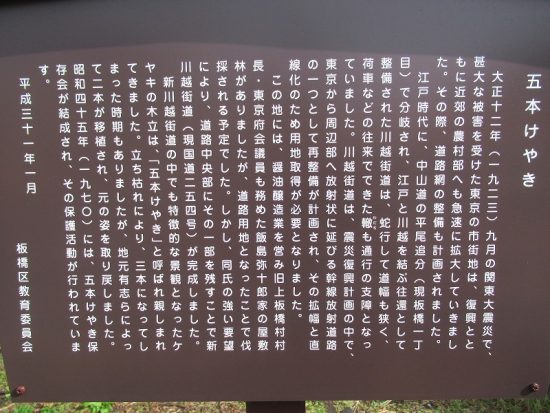 五本けやき
大正十二年（一九二三）九月の関東大震災で、
甚大な被害を受けた東京の市街地は、復興とと
もに近郊の農村部へも急速に拡大していきまし
た。その際、道路網の整備も計画されました。
江戸時代に、中山道の平尾追分（現板橋一丁
目）で分岐され、江戸と川越を結ぶ往還として
整備された川越街道は、蛇行して道幅も狭く、
荷車などの往来でできた轍も通行の支障となっ
ていました。川越街道は、震災復興計画の中で、
東京から周辺部へ放射状に延びる幹線放射道路
の一つとして再整備が計画され、その拡幅と直
線化のため用地取得が必要となりました。
この地には、醤油醸造業を営み旧上板橋村村
長・東京府会議員も務めた飯島弥十郎家の屋敷
林がありましたが、道路用地となったことで伐
採される予定でした。しかし、同氏の強い要望
により、道路中央部にその一部を残すことで新
川越街道（現国道二五四号）が完成しました。
新川越街道の中でも特徴的な景観となったケ
ヤキの木立は、「五本けやき」と呼ばれ親しまれ
てきました。立ち枯れにより、三本になってし
まった時期もありましたが、地元有志らによっ
て二本が移植され、元の姿を取り戻しました。
昭和四十五年（一九七〇）には、五本けやき保
存会が結成され、その保護活動が行われていま
す。
平成三十一年一月
板橋区教育委員会